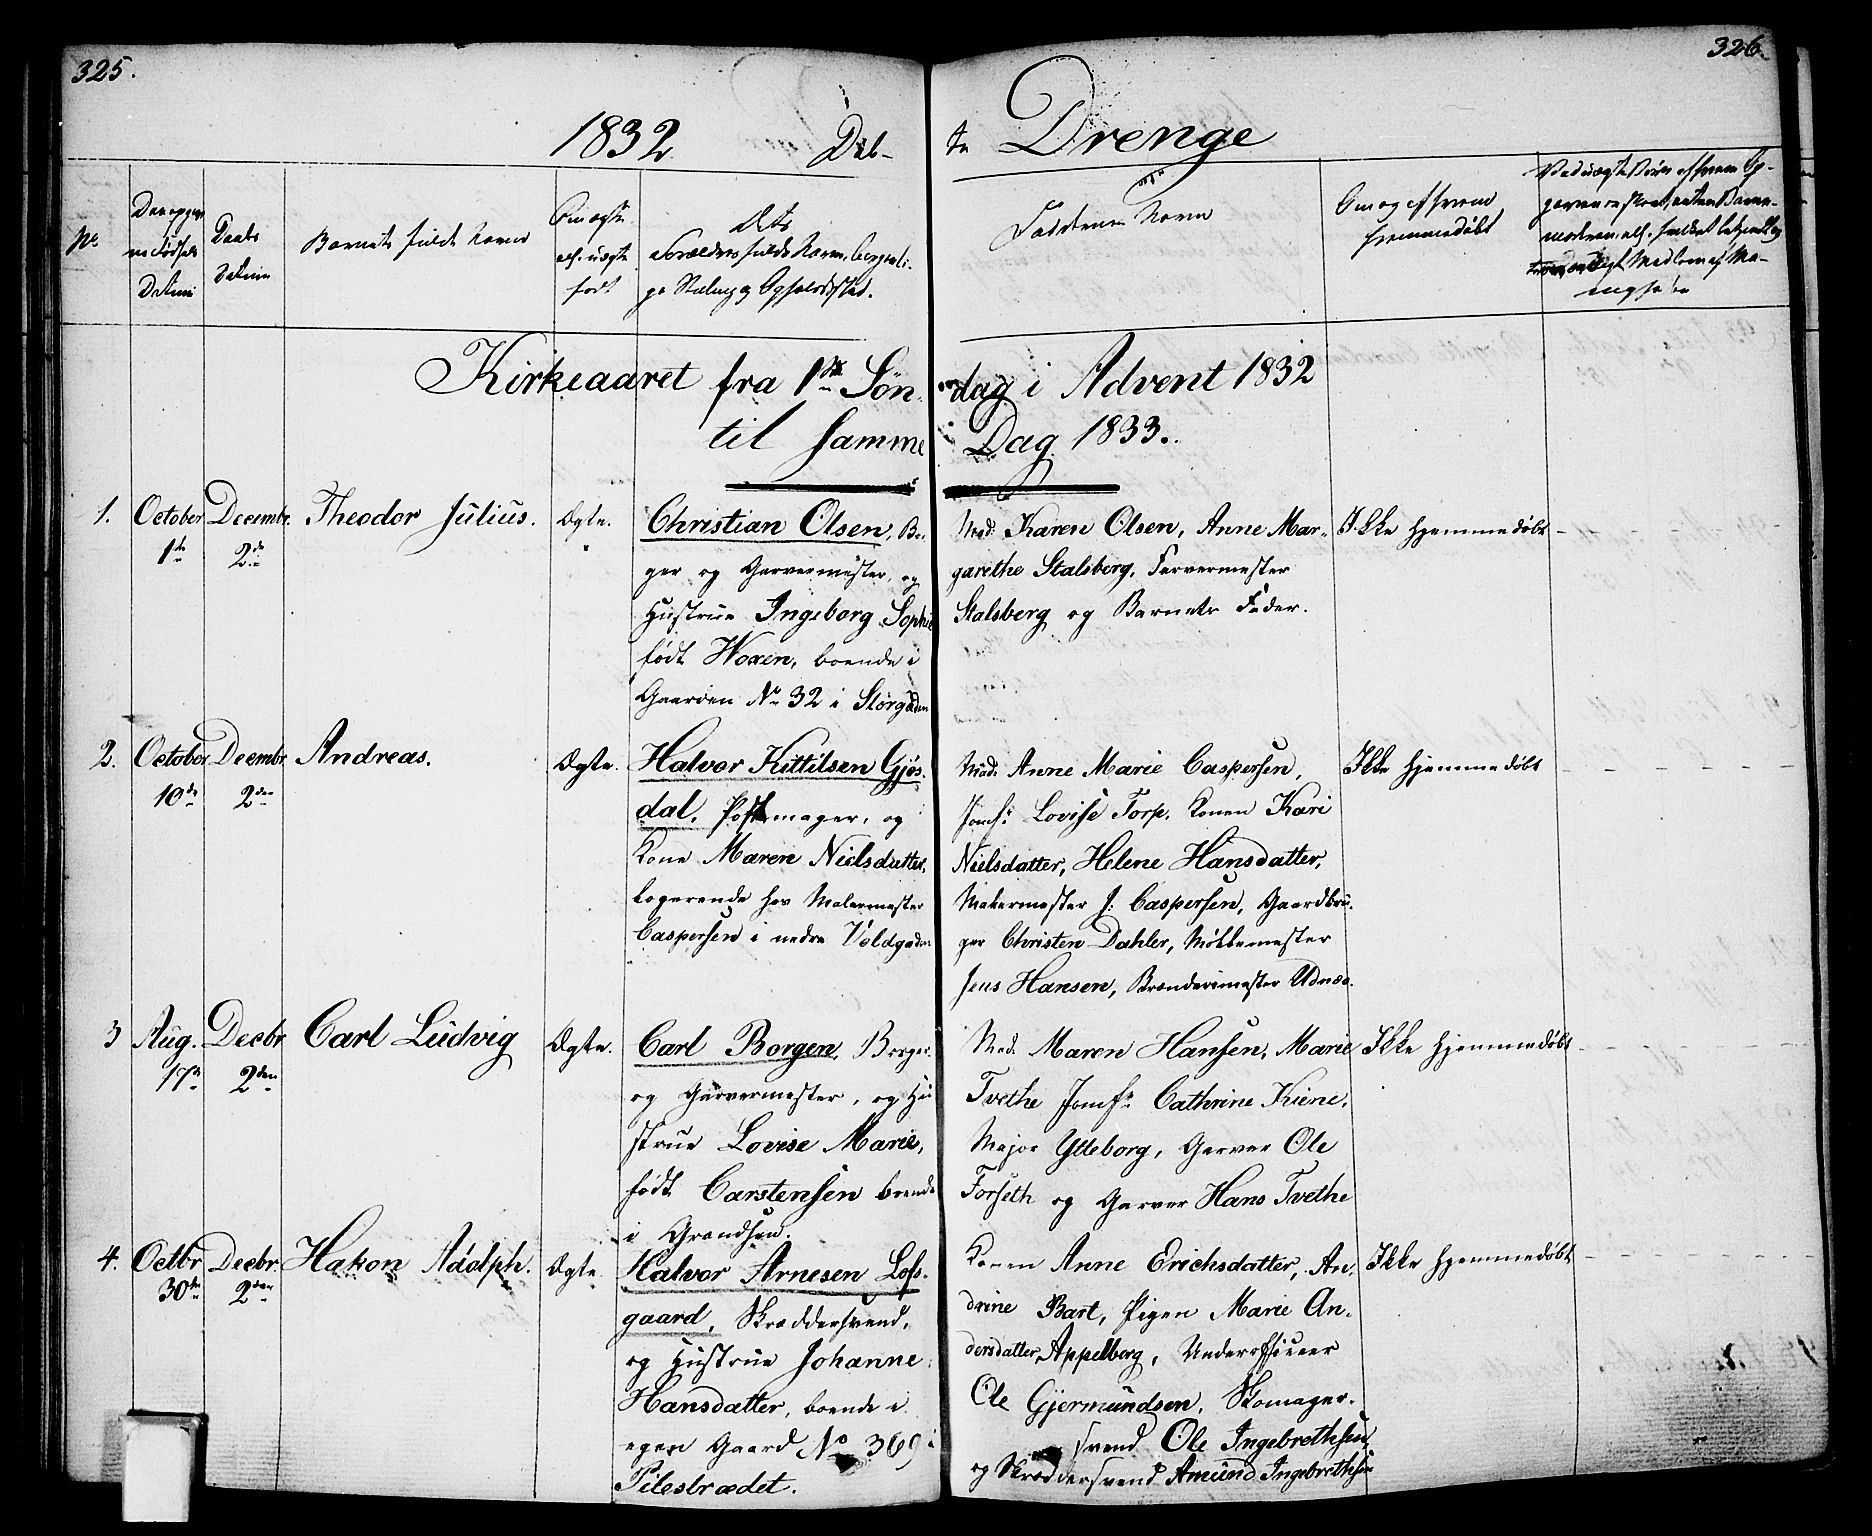 325.
326.
1832 Døb-
te Drenge
No
Fødsels
Datum
Daabs
Datum
Barnets fulde Navn
født
Forældres fulde Navn, borgerli-
ge Stilling og Opholdssted.
Faddernes Navn
Om og af hvem
hjemmedøbt
Kirkeaaret fra 1ste Søn-
dag i Advent 1832
til samme
Dag 1833.
1. October Decembr. Theodor Julius. Ægte. Christian Olsen, Bor-
1de 2de
ger og Garvermester, og
Hustrue Ingeborg Sophie
født Woxen, boende i
Gaarden No 32 i Storgaden
Mad. Karen Olsen, Anne Mar-
garethe Stalsberg, Farvermester
Stalsberg og Barnets Fader.
Ikke hjemmedøbt
2. October Decmbr. Andreas. Ægte. Halvor Kittilsen Gjøs-
10de 2den
dal, og
Kone Maren Nielsdatter,
logerende hos Malermester
Caspersen i nedre Voldgaden
Mad. Anne Marie Caspersen,
Jomfr Lovise Torp, Konen Kari
Nielsdatter, Helene Hansdatter,
Malermester J. Caspersen, Gaardbru-
ger Christen Dahler, Møllemester
Jens Hansen, Brænderimester Udnæs.
Ikke hjemmedøbt
3 Aug. Decbr Carl Ludvig Ægte. Carl Borgen, Borger
17de 2den
og Garvermester, og Hu-
strue Lovise Marie,
født Carstensen boende
i Grændsen.
Mad. Maren Hansen, Marie
Tvethe Jomfr Cathrine Kiene,
Major Ytteborg, Garver Ole
Forseth og Garver Hans Tvethe
Ikke hjemmedøbt
4. Octbr Decbr. Hakon Adolph. Ægte. Halvor Arnesen Lofs-
30de 2den
gaard, Skræddersvend,
og Hustrue Johanne
Hansdatter, boende i
egen Gaard No 369 i
Pilestrædet.
Konen Anne Erichsdatter, An-
drine Bart, Pigen Marie An-
dersdatter Appelberg, Underofficeer
Ole Gjermundsen, Skomager-
svend Ole Ingebrethsen
og Skræddersvend Amund Ingebrethsen
Ikke hjemmedøbt